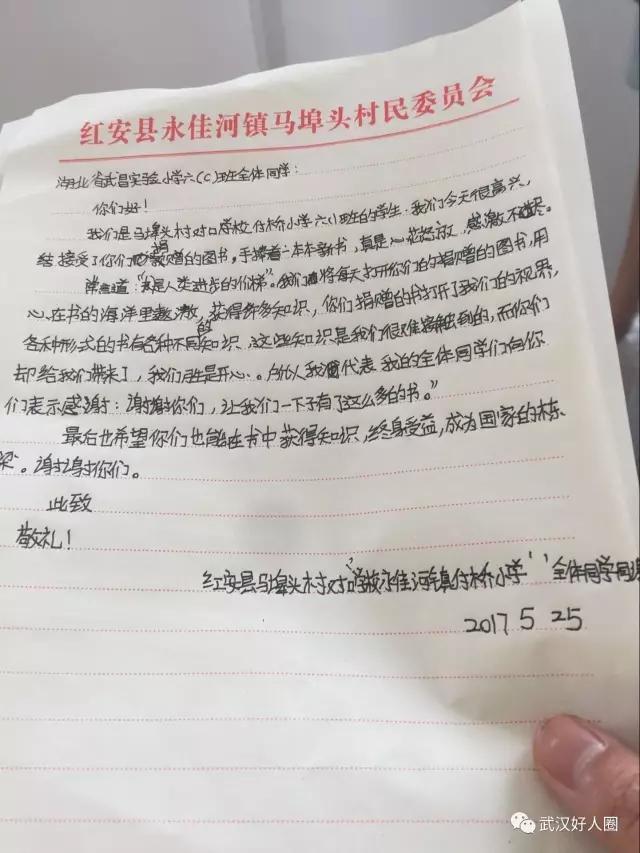 红安县永佳河镇马埠头村民委员会
湖北省武昌实验小学六(C)班全体同学：
你们好！
我们是马埠头村对口学校付桥小学六(1)班的学生。我们今天很高兴，
接受了你们捐赠的图书，手捧着一本本新书，真是心花怒放，感激不尽。
常言道：“书是人类进步的阶梯”。我们将每天打开你们的捐赠的图书，用
心在书的海洋里遨游，获得许多知识，你们捐赠的书打开了我们的视界，
各种形式的书有各种不同的知识，这些知识是我们很难接触到的，而你们
却给我们带来了，我们很是开心。所以我谨代表我的全体同学们向你
们表示感谢：谢谢你们，让我们一下子有了这么多的书。”
最后也希望你们也能在书中获得知识，终身受益，成为国家的栋
梁。谢谢你们。
此致
敬礼！
红安县马埠头村对口学校永佳河镇付桥小学 全体同学
2017 5 25
武汉好人圈